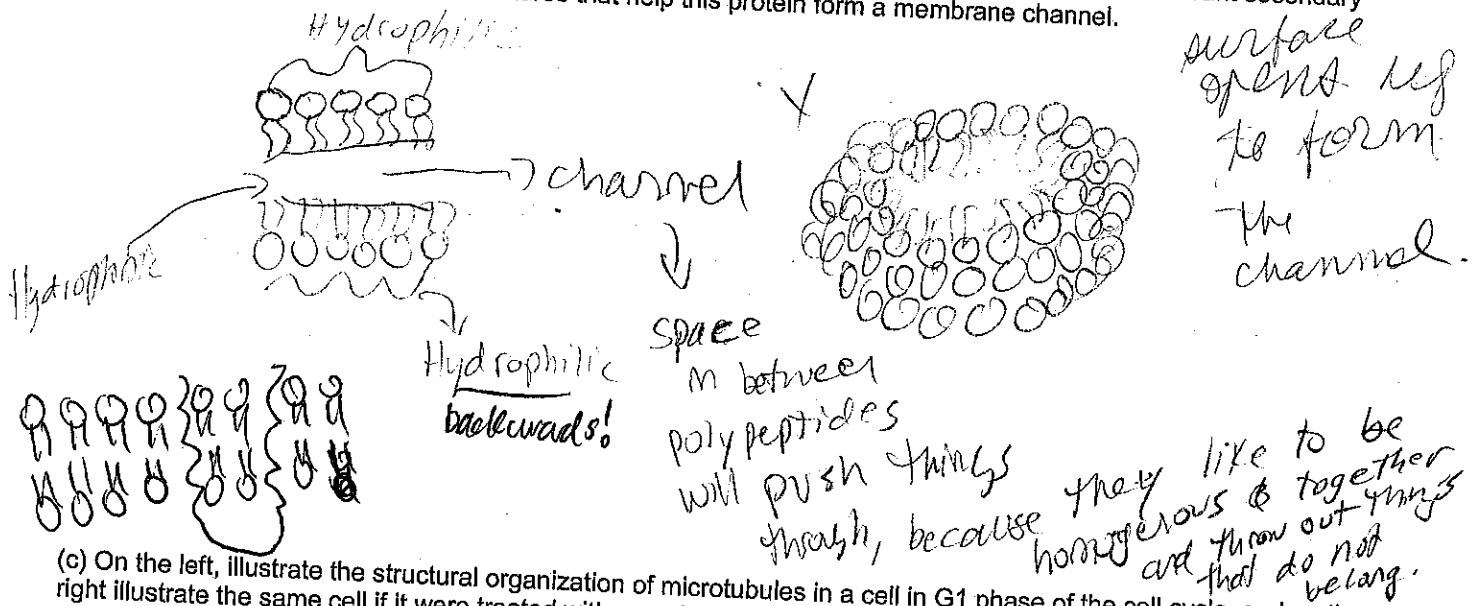 that help this protein form a membrane channel.
secondary
Hydrophilic
Y
surface
opens up
to form
the
channel.
channel
Hydrophobic
Hydrophilic
backwads!
space
in between
polypeptides
will push things
through, because they like to be
homogerous & together
and throw out things
that do not
belong.
(c) On the left, illustrate the structural organization of microtubules in a cell in G1 phase of the cell cycle
right illustrate the same cell if it were treated with